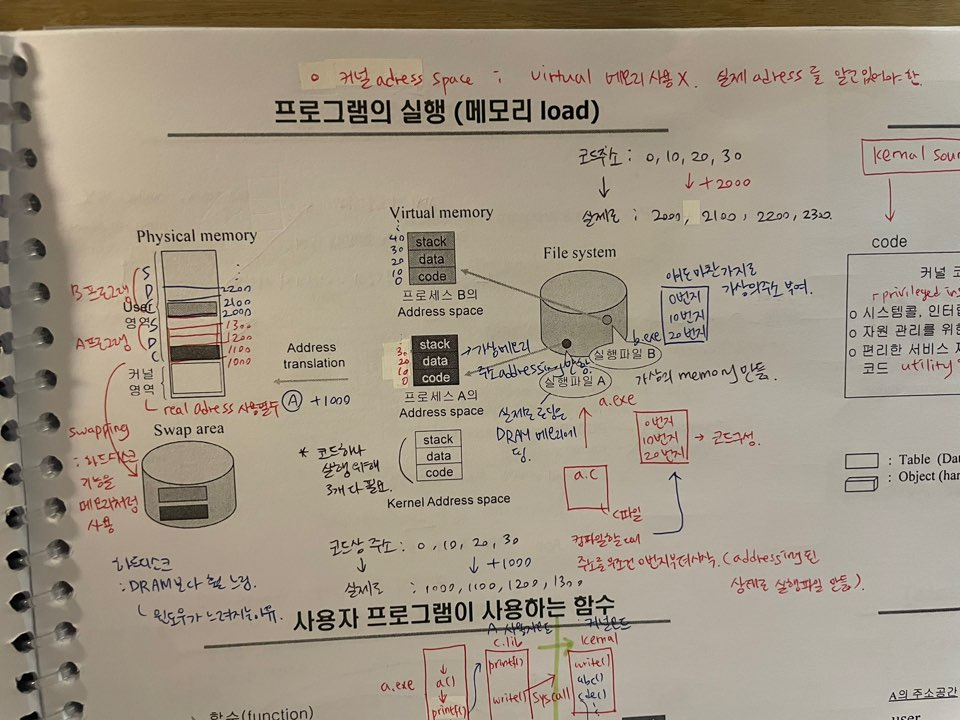 o 커널 adress space : virtual 메모리 사용 X. 실제 adress를 알고 있어야 한
프로그램의 실행 (메모리 load)
코드주소 : 0, 10, 20, 30
↓ ↓ +2000
실제로 : 2000, 2100, 2200, 2300
kernal sour
Physical memory
S
D
B 프로그램
User
영역
S
A 프로그램
D
C
커널
영역
2200
2100
2000
1300
1200
1100
1000
Virtual memory
40
30
20
10
0
stack
data
code
프로세스 B의
Address space
File system
얘도 마찬가지로
가상의 주소 부여.
0번지
10번지
20번지
b.exe
실행파일 B
실행파일 A
a.exe
가상의 memory 만듦.
Address
translation
A +1000
30
20
10
0
stack
data
code
→가상메모리
주소addressing
프로세스 A의
Address space
실제로 로딩은
DRAM 메모리에
real adress 사용필수
swapping
: 하드디스크
기능을
메모리처럼
사용
Swap area
* 코드하나
실행 위해
3개 다 필요.
stack
data
code
Kernel Address space
a.c
c파일
0번지
10번지
20번지
→ 코드구성.
컴파일하는
주소를 무조건 0번지부터 시작. (addressing된
상태로 실행파일 만듦)
코드상 주소 : 0, 10, 20, 30
↓ ↓ +1000
실제로 : 1000, 1100, 1200, 1300
하드디스크
: DRAM보다 훨 느림.
윈도우가 느려지는 이유.
code
커널 코
privileged ins
o 시스템콜, 인터럽
o 자원 관리를 위한
o 편리한 서비스 제
코드 utility
: Table (Da
: Object (har
사용자 프로그램이 사용하는 함수
A 사용자모드
c.lib
커널모드
kernal
a.exe
a()
printf()
printf()
write()
syscall
write()
abc()
cde()
함수(function)
A의 주소공간
user